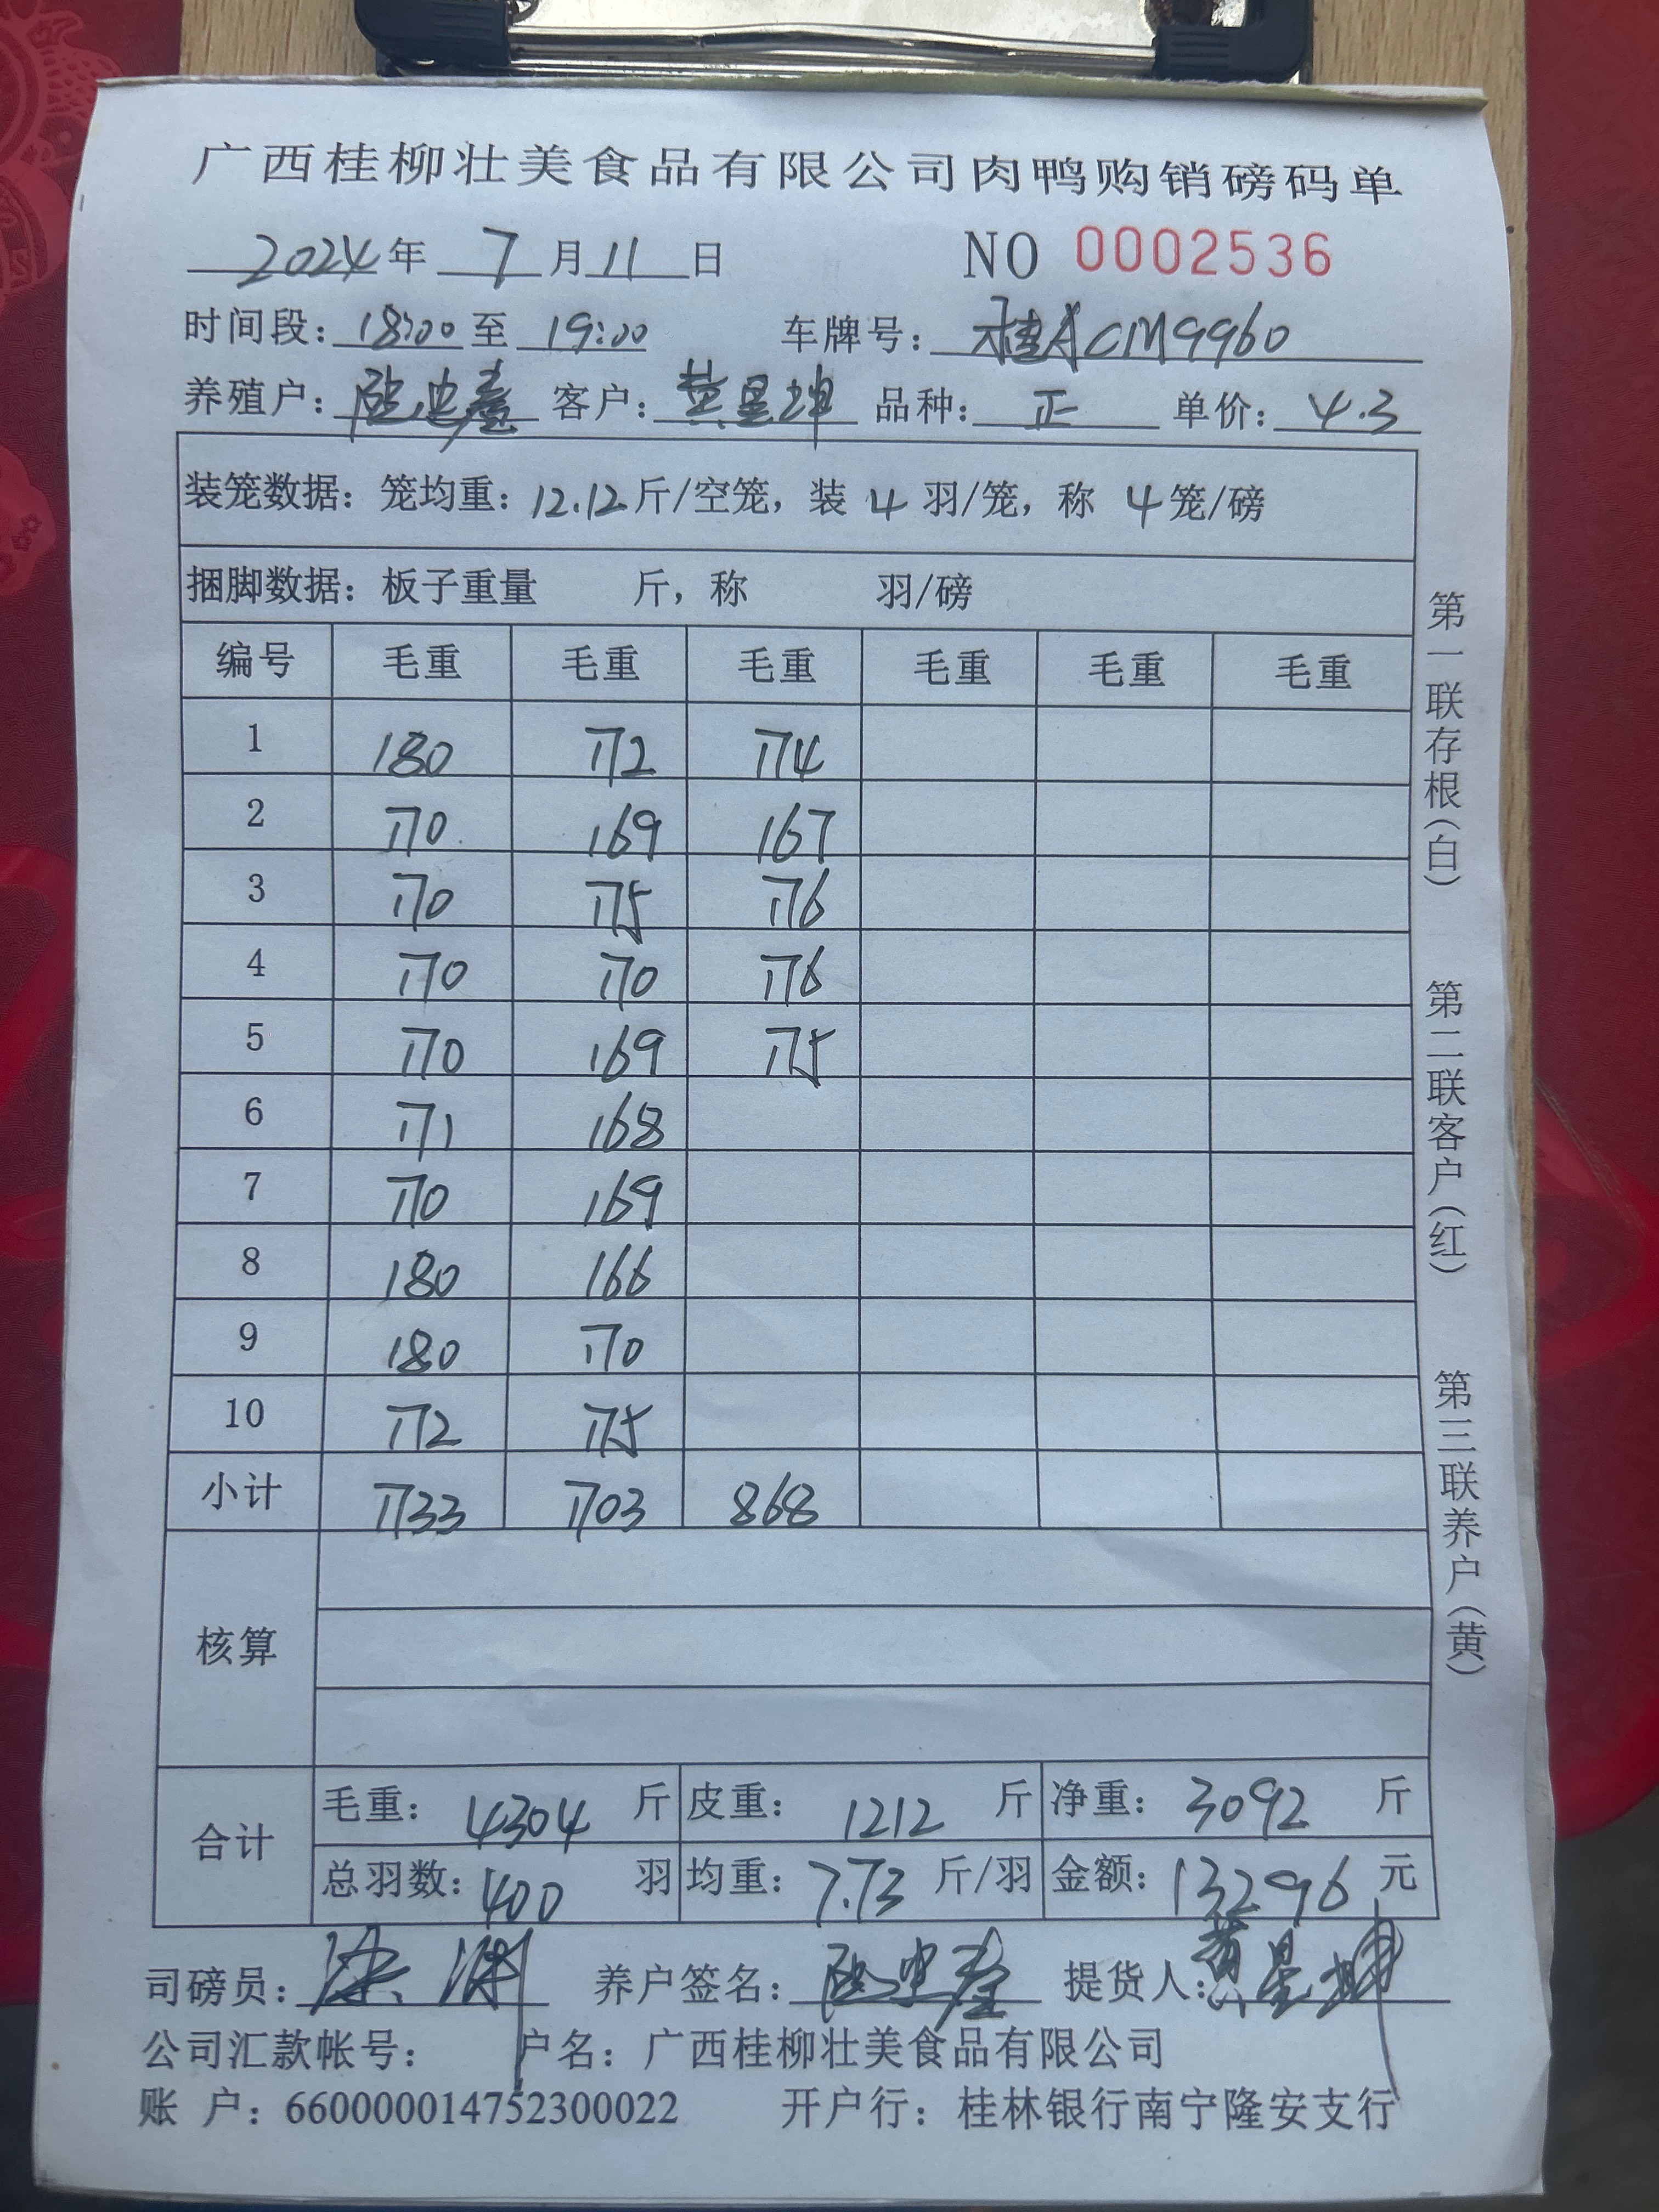 广西桂柳壮美食品有限公司肉鸭购销磅码单
2024年 7月11日 NO 0002536
时间段：18:00至 19:00 车牌号：桂ACM9960
养殖户： 客户：黄星坤 品种：正 单价：4.3
装笼数据：笼均重：12.12斤/空笼，装 4 羽/笼，称 4笼/磅
捆脚数据：板子重量 斤，称 羽/磅
编号 毛重 毛重 毛重 毛重 毛重 毛重
1 180 172 174
2 170 169 167
3 170 175 176
4 170 170 176
5 170 169 175
6 171 168
7 170 169
8 180 166
9 180 170
10 172 175
小计 1733 1703 868
核算
合计 毛重：4304 斤 皮重：1212 斤 净重：3092 斤
总羽数：400 羽 均重：7.73 斤/羽 金额：13296 元
司磅员： 养户签名： 提货人：黄星坤
公司汇款帐号： 户名：广西桂柳壮美食品有限公司
账 户：660000014752300022 开户行：桂林银行南宁隆安支行
第一联存根（白）
第二联客户（红）
第三联养户（黄）